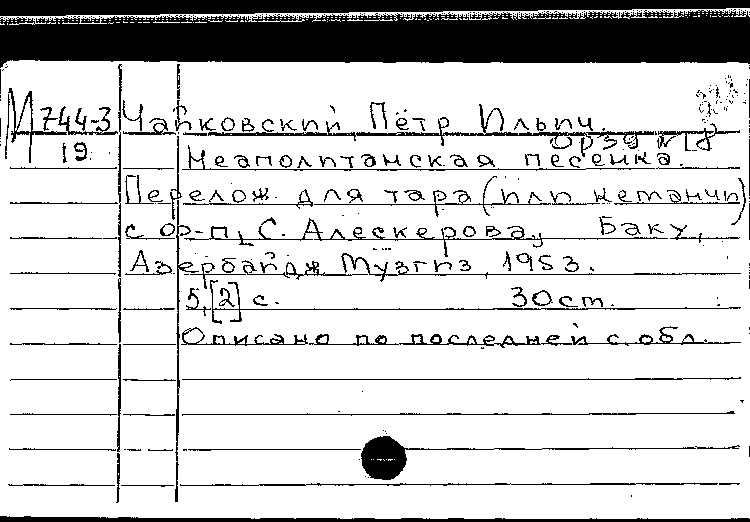 М 744-3 Чайковский, Пётр Ильич.
19 Ор 39 № 18
Неаполитанская песенка.
Перелож. для тара (или кеманчи)
с ф-п. С. Алескерова, Баку,
Азербайдж Музгиз, 1953.
5, [2] с. 30 см.
Описано по последней с. обл.